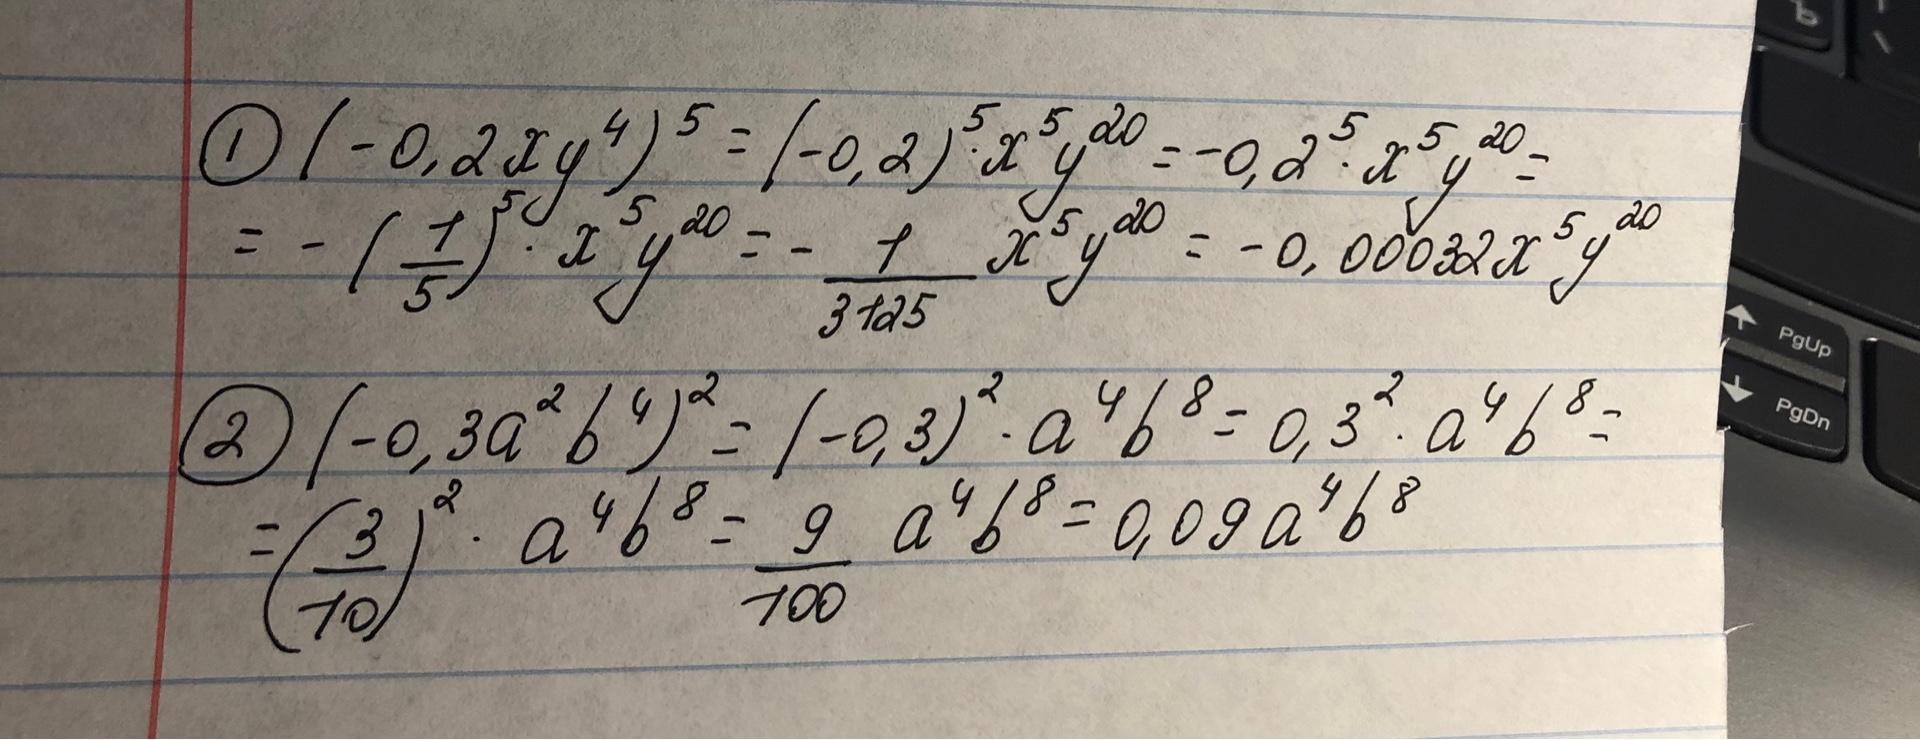 ① (-0,2xy⁴)⁵ = (-0,2)⁵·x⁵y²⁰ = -0,2⁵·x⁵y²⁰ =
= -(1/5)⁵·x⁵y²⁰ = - 1/3125 x⁵y²⁰ = -0,00032x⁵y²⁰
② (-0,3a²b⁴)² = (-0,3)²·a⁴b⁸ = 0,3²·a⁴b⁸ =
= (3/10)²·a⁴b⁸ = 9/100 a⁴b⁸ = 0,09a⁴b⁸
Ъ
PgUp
PgDn